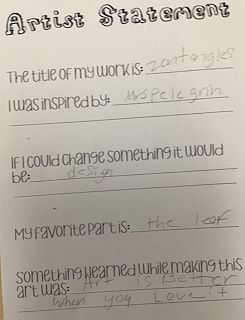 Artist Statement
The title of my work is: zentangles
I was inspired by: Mrs Pelegrin
If I could change something it would
be: design
My favorite part is: the leaf
Something I learned while making this
art was: Art is Better
When you Love it